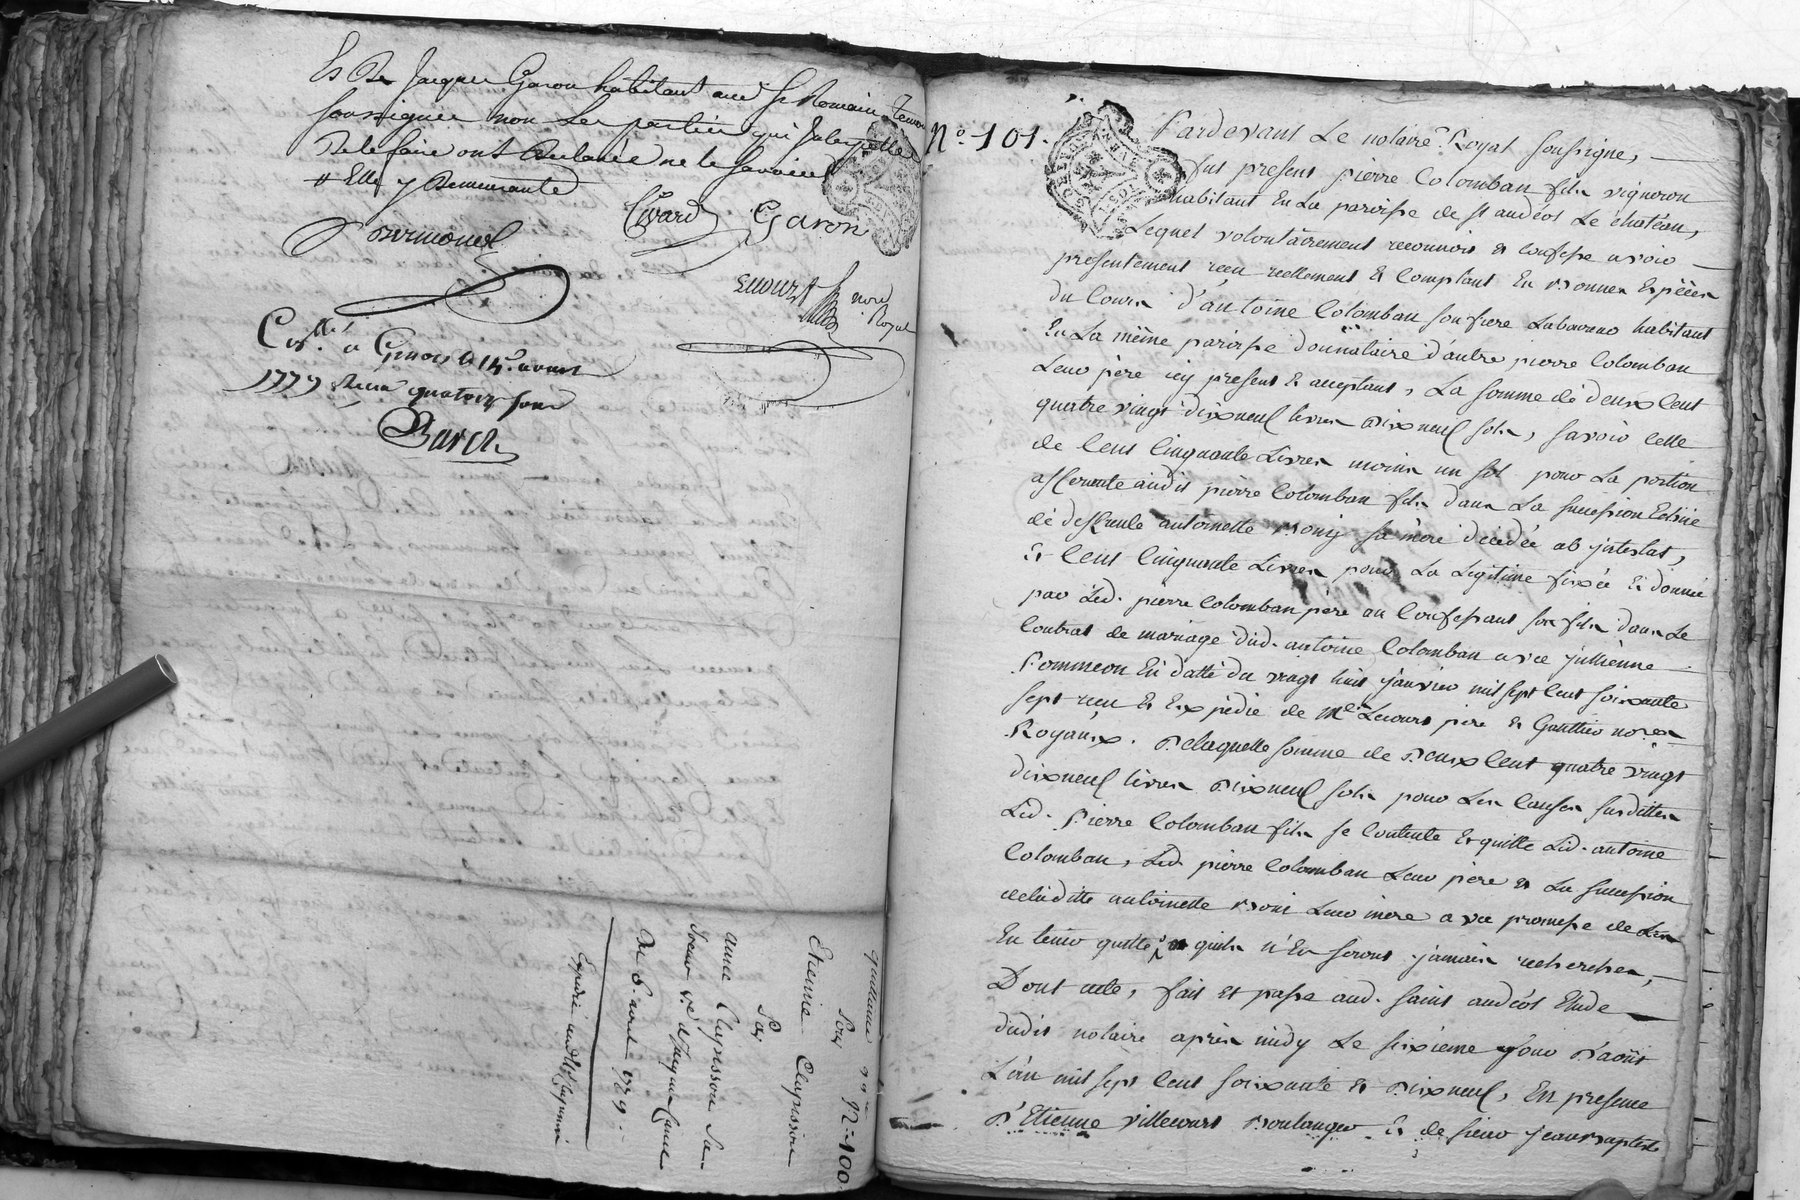 Et Sr Jacques Garon habitant aud St Romain
soussignes non les parties qui
De le faire ont declaré ne le savoir
# Elle y Demeurante
Girard Garon
nore Royal
1779 Recu quatorze sous
Bard
quittance
Pour
Etienne Clapisson
N=100
Par
anne Clapisson sa
soeur ve de jacque
Du 6. aout 1779.
Expedié
N°. 101.
Pardevant Le notaire Royal soussigné,
fut present pierre Colomban fils vigneron
habitant En La paroisse de st andéol Le château,
Lequel volontairement reconnoit et confesse avoir
presentement reçu réellement Et Comptant En Bonnes Espèces
du Cours d'antoine Colomban son frere Laboureur habitant
En La même paroisse donnataire d'autre pierre Colomban
Leur père icy present Et acceptant, La somme de deux Cent
quatre vingt dixneuf livres Dixneuf sols, savoir Celle
de Cent Cinquante Livres moins un sol pour La portion
afferante audit pierre Colomban fils dans La succession
de deffunte antoinette Bony sa mère décédée ab intestat,
Et Cent Cinquante Livres pour La Légitime fixée Et donnée
par Led. pierre Colomban père au Confessant son fils dans Le
Contrat de mariage dud. antoine Colomban avec jullienne
Pommeon En datte du vingt huit janvier mil sept Cent soixante
sept reçu Et Expédié de Me Lecourt père Et Gaulthier nores
Royaux. De laquelle somme de Deux Cent quatre vingt
dixneuf livres Dixneuf sols pour Les Causes susdittes
Led. Pierre Colomban fils se Contente Et quitte Led. antoine
Colomban, Led. pierre Colomban Leur père Et La succession
de laditte antoinette Boni Leur mère avec promesse de Les
En tenir quitte, Et quils n'En seront jamais recherchés,
Dont acte, fait Et passé aud. saint andéol Etude
dudit notaire après midy Le sixième jour D'août
L'an mil sept Cent soixante Et Dixneuf, En presence
D'Etienne Villecourt Boulanger Et de sieur jean Baptiste